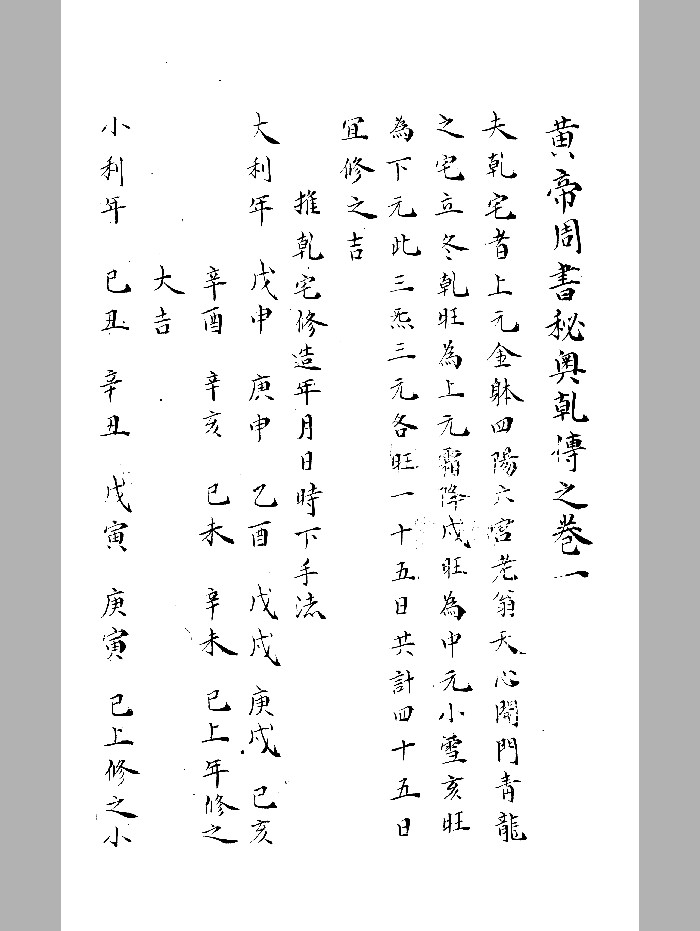 黄帝周書秘奥乹傳之巻一
夫乹宅者上元金躰四陽六宫老翁天心開門青龍
之宅立冬乹旺為上元霜降戍旺為中元小雪亥旺
為下元此三炁三元各旺一十五日共計四十五日
宜修之吉
推乹宅修造年月日時下手法
大利年 戊申 庚申 乙酉 戊戍 庚戍 已亥
辛酉 辛亥 已未 辛未 已上年修之
大吉
小利年 已丑 辛丑 戊寅 庚寅 已上修之小